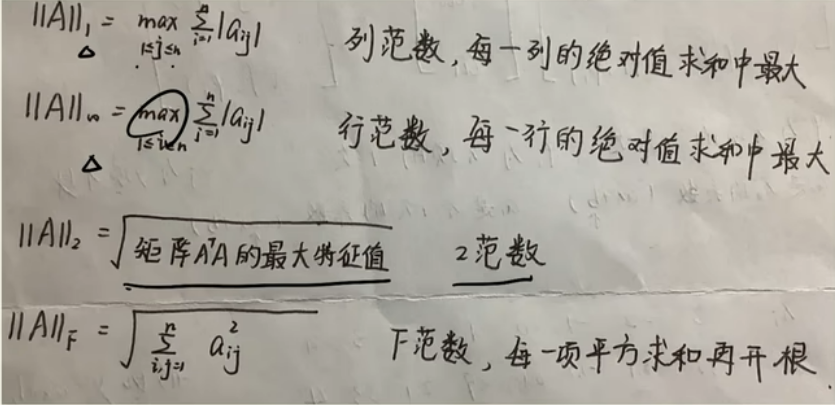 ||A||₁ = max 1≤j≤n ∑ i=1 n |aij| 列范数,每一列的绝对值求和中最大
||A||∞ = max 1≤i≤n ∑ j=1 n |aij| 行范数,每一行的绝对值求和中最大
||A||₂ = √矩阵AᵀA的最大特征值 2范数
||A||F = √∑ i,j=1 n aij² F范数,每一项平方求和再开根